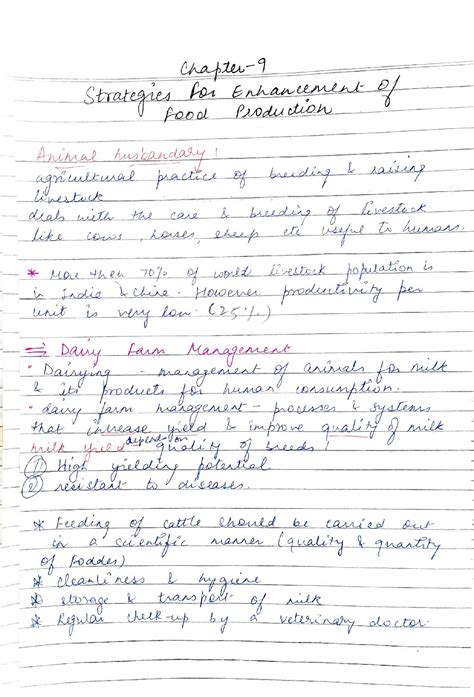 Chapter-9
Strategies For Enhancement of
Food Production
Animal husbandary :
agricultural practice of breeding & raising
livestock
deals with the care & breeding of livestock
like cows, horses, sheep etc useful to humans.
* More than 70% of world livestock population is
in India & China. However productivity per
unit is very low (25%)
⇒ Dairy Farm Management
• Dairying - management of animals for milk
& its products for human consumption.
• dairy farm management - processes & systems
that increase yield & improve quality of milk
milk yield depend on quality of breeds :
① High yielding potential
② resistant to diseases.
* Feeding of cattle should be carried out
in a scientific manner (quality & quantity
of Fodder)
* cleanliness & hygiene
* storage & transport of milk
* Regular check-up by a veterinary doctor